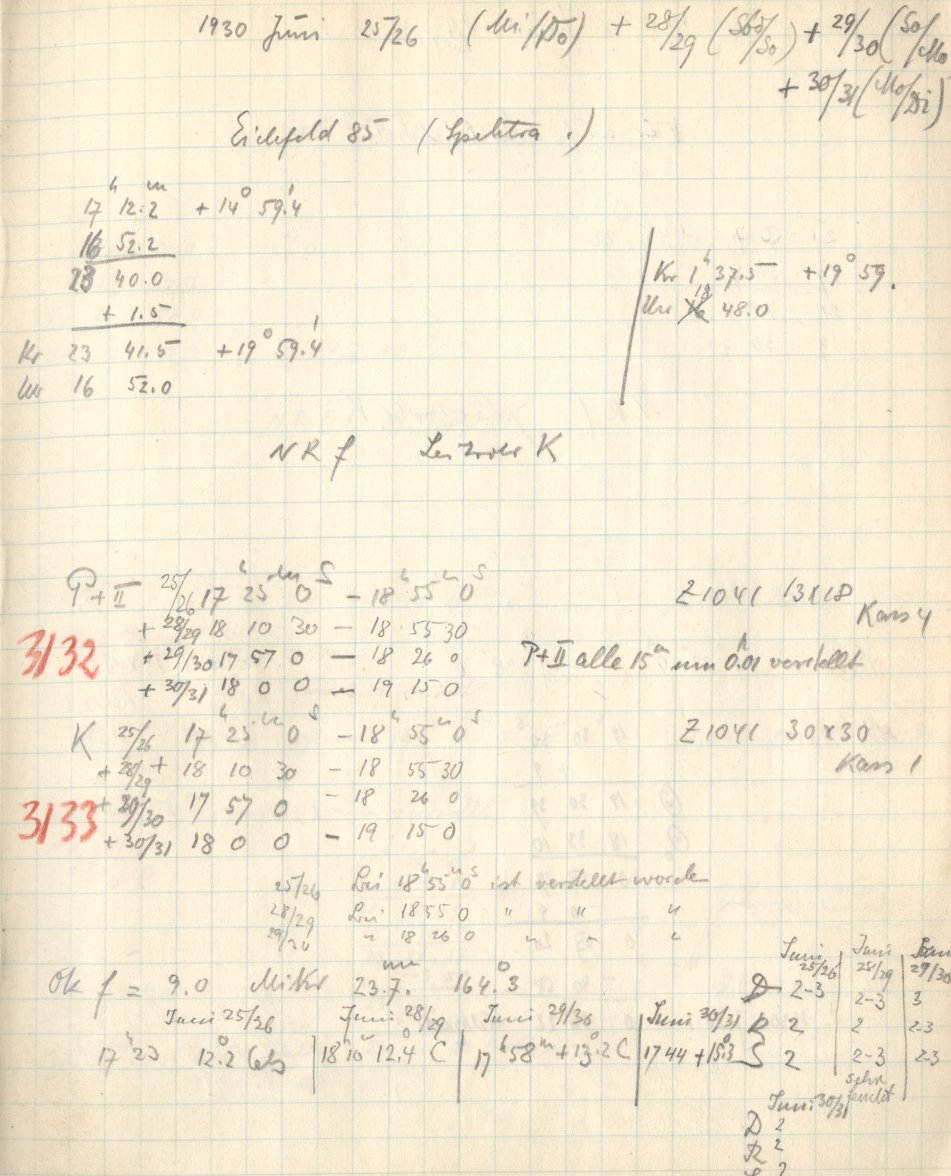 1930 Juni 25/26 (Mi/Do) + 28/29 (Sb/So) + 29/30 (So/Mo
+ 30/31 (Mo/Di)
Eichfeld 85 (Spektra .)
17 h 12.2 m + 14° 59.'4
16 52.2
23 40.0
+ 1.5
Kr 23 41.5 + 19° 59.'4
Uhr 16 52.0
Kr 1 h 37.5 + 19° 59.
Uhr 18 48.0
N R f K
P+II 25/26 17 h 25 m 0 s – 18 h 55 m 0 s Z1041 13x18
Kass 4
+ 28/29 18 10 30 – 18 55 30
3132
+ 29/30 17 57 0 – 18 26 0 P+II alle 15 m um 0.01 verstellt
+ 30/31 18 0 0 – 19 15 0
K 25/26 17 h 25 m 0 s – 18 h 55 m 0 s Z1041 30x30
Kass 1
+ 28/29 + 18 10 30 – 18 55 30
3133
+ 29/30 17 57 0 – 18 26 0
+ 30/31 18 0 0 – 19 15 0
25/26 bei 18 h 55 m 0 s ist verstellt worde
28/29 bei 18 55 0 " " "
29/30 " 18 26 0 " " "
Ok f = 9.0 Mikr 23.7 mm 164.°3
Juni 25/26 Juni 28/29 Juni 29/30 Juni 30/31
17 h 23 12.°2 Cels 18 h 10 12.°4 C 17 h 58 m + 13.°2 C 17 44 + 15.°3
Juni 25/26 Juni 28/29 Juni 29/30
D 2-3 2-3 3
R 2 2 2-3
S 2 2-3 2-3
sehr feucht
Juni 30/31
D 2
R 2
S 2